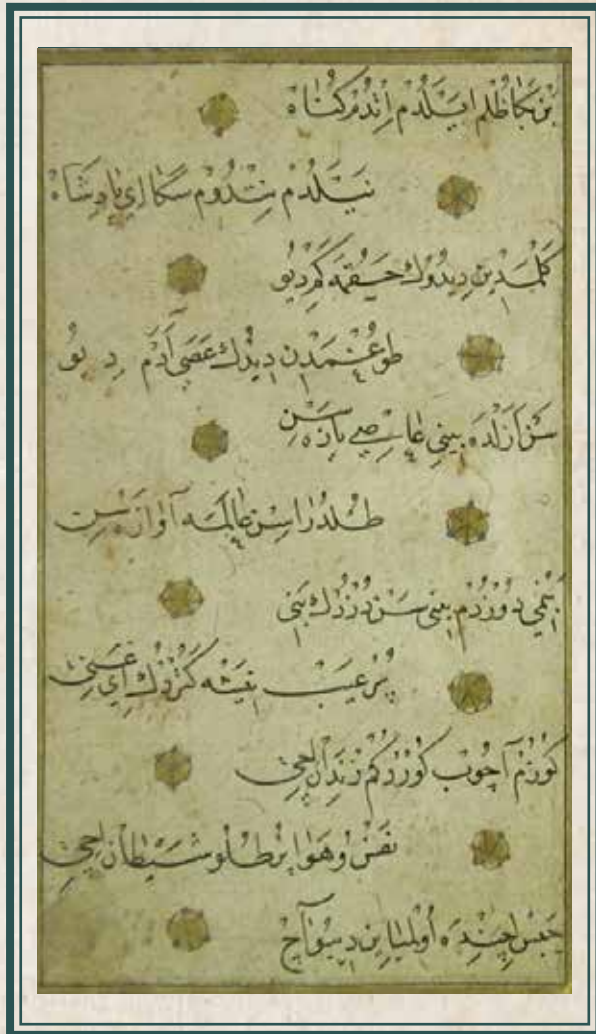 بَنْ بَڭَا ظُلْم ايَلَدُمْ اِتْدُمْ كُنَاهْ
نَيْلَدُمْ نِتْدُومْ سَڭَا اَيْ پَادِشَاهْ
كَلْمَدِينْ دِيدُوڭْ حَقُمَه كَمْ دِيُو
طُوغْمَدِنْ دِيدُڭْ عَصَى آدَمْ دِيُو
سَنْ اَزَلْدَه بَنِى عَاصِى يَازَسِنْ
طُلْدُرَاسِنْ عَالَمَه آوَازَه سِنْ
بَنْمِى دُوزْدُمْ بَنِى سَنْ دُزْدُڭْ بَنِى
پُرْعَيْبْ نِيشَه كَتُرْدُڭْ اَيْ غَنِى
كُوزُمْ آچُوبْ كُورْدُكُمْ زِنْدَانْ اِچِى
نَفْسْ و هَوَا پُرْ طُلُو شَيْطَانْ اِچِى
حَبْس اِچِنْدَه اُولْمَيَايِنْ دِيُو آچْ